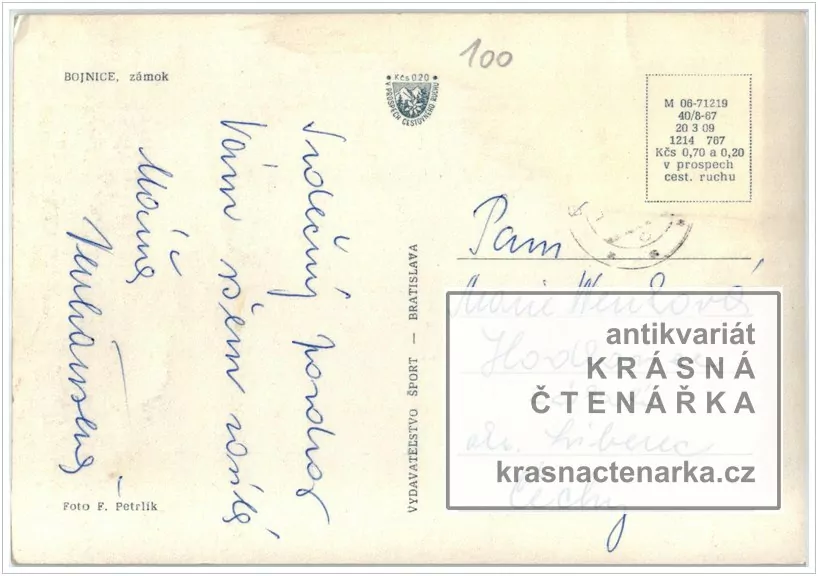 100
BOJNICE, zámok
Kčs 0.20
V PROSPECH CESTOVNÉHO RUCHU
M 06-71219
40/8-67
20 3 09
1214 767
Kčs 0,70 a 0,20
v prospech
cest. ruchu
Srdečný pozdrav
Vám všem
Máňa
VYDAVATEĽSTVO ŠPORT — BRATISLAVA
Paní
Marie
okr. Liberec
Čechy
antikvariát
KRÁSNÁ
ČTENÁŘKA
krasnactenarka.cz
Foto F. Petrlík